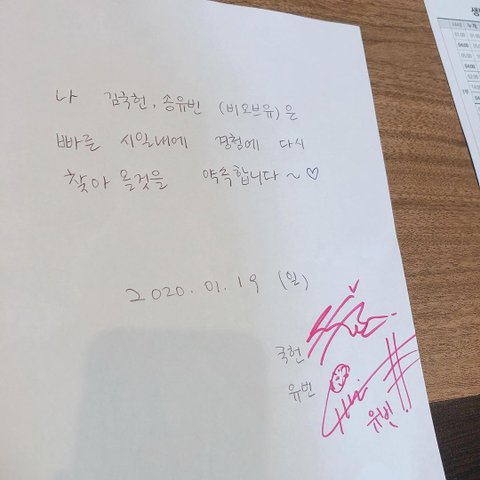 나 김국헌, 송유빈 (비오브유)은
빠른 시일내에 경철에 다시
찾아 올것을 약속합니다~♡
2020.01.19 (일)
국헌
유빈
유빈!